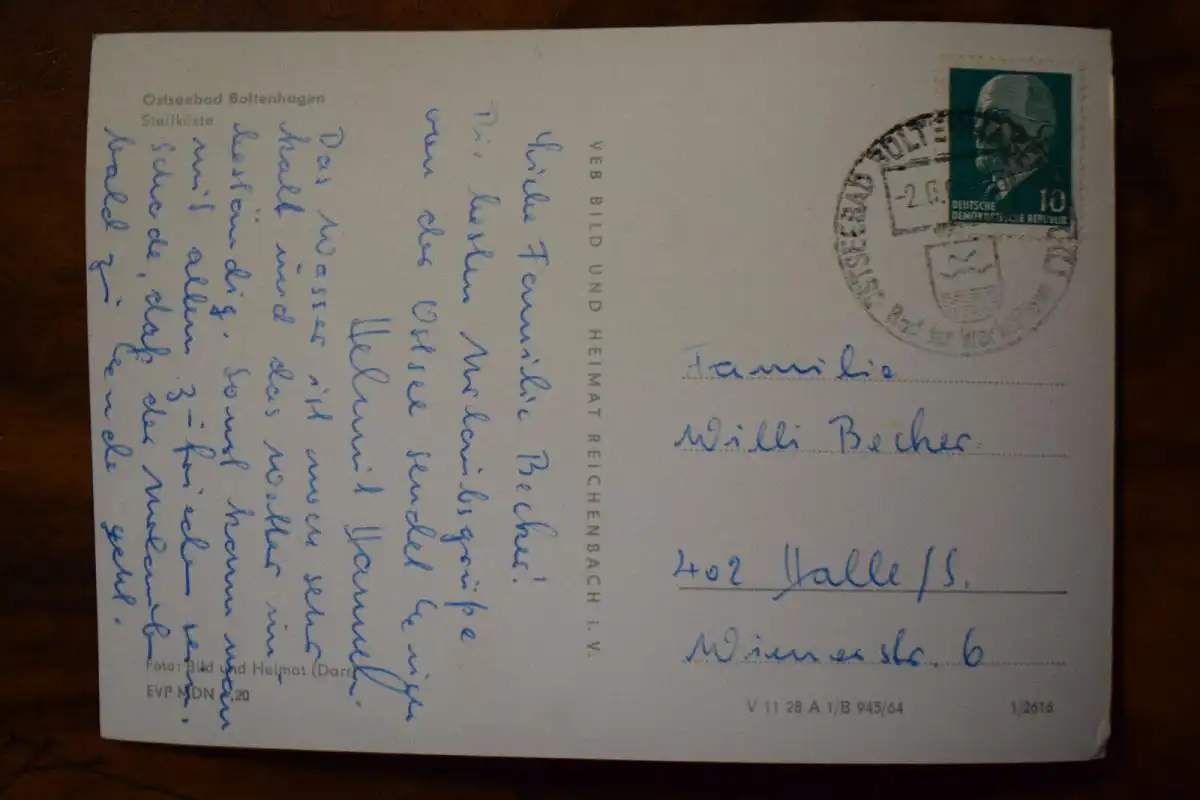 Ostseebad Boltenhagen
Steilküste
Liebe Familie Becher!
Die besten Urlaubsgrüße
von der Ostsee sendet
Helmut
Das Wasser ist noch sehr
kalt und das Wetter un-
beständig. Sonst kann man
mit allem zufrieden sein.
Schade, daß der Urlaub
bald zu Ende geht.
Foto: Bild und Heimat
EVP MDN 0,20
VEB BILD UND HEIMAT REICHENBACH i. V.
OSTSEEBAD BOLTENHAGEN
Bad der Werktätigen
-2.6.
10
DEUTSCHE
DEMOKRATISCHE REPUBLIK
Familie
Willi Becher.
402 Halle/S.
Wienerstr. 6
V 11 28 A 1/B 945/64
1/2616